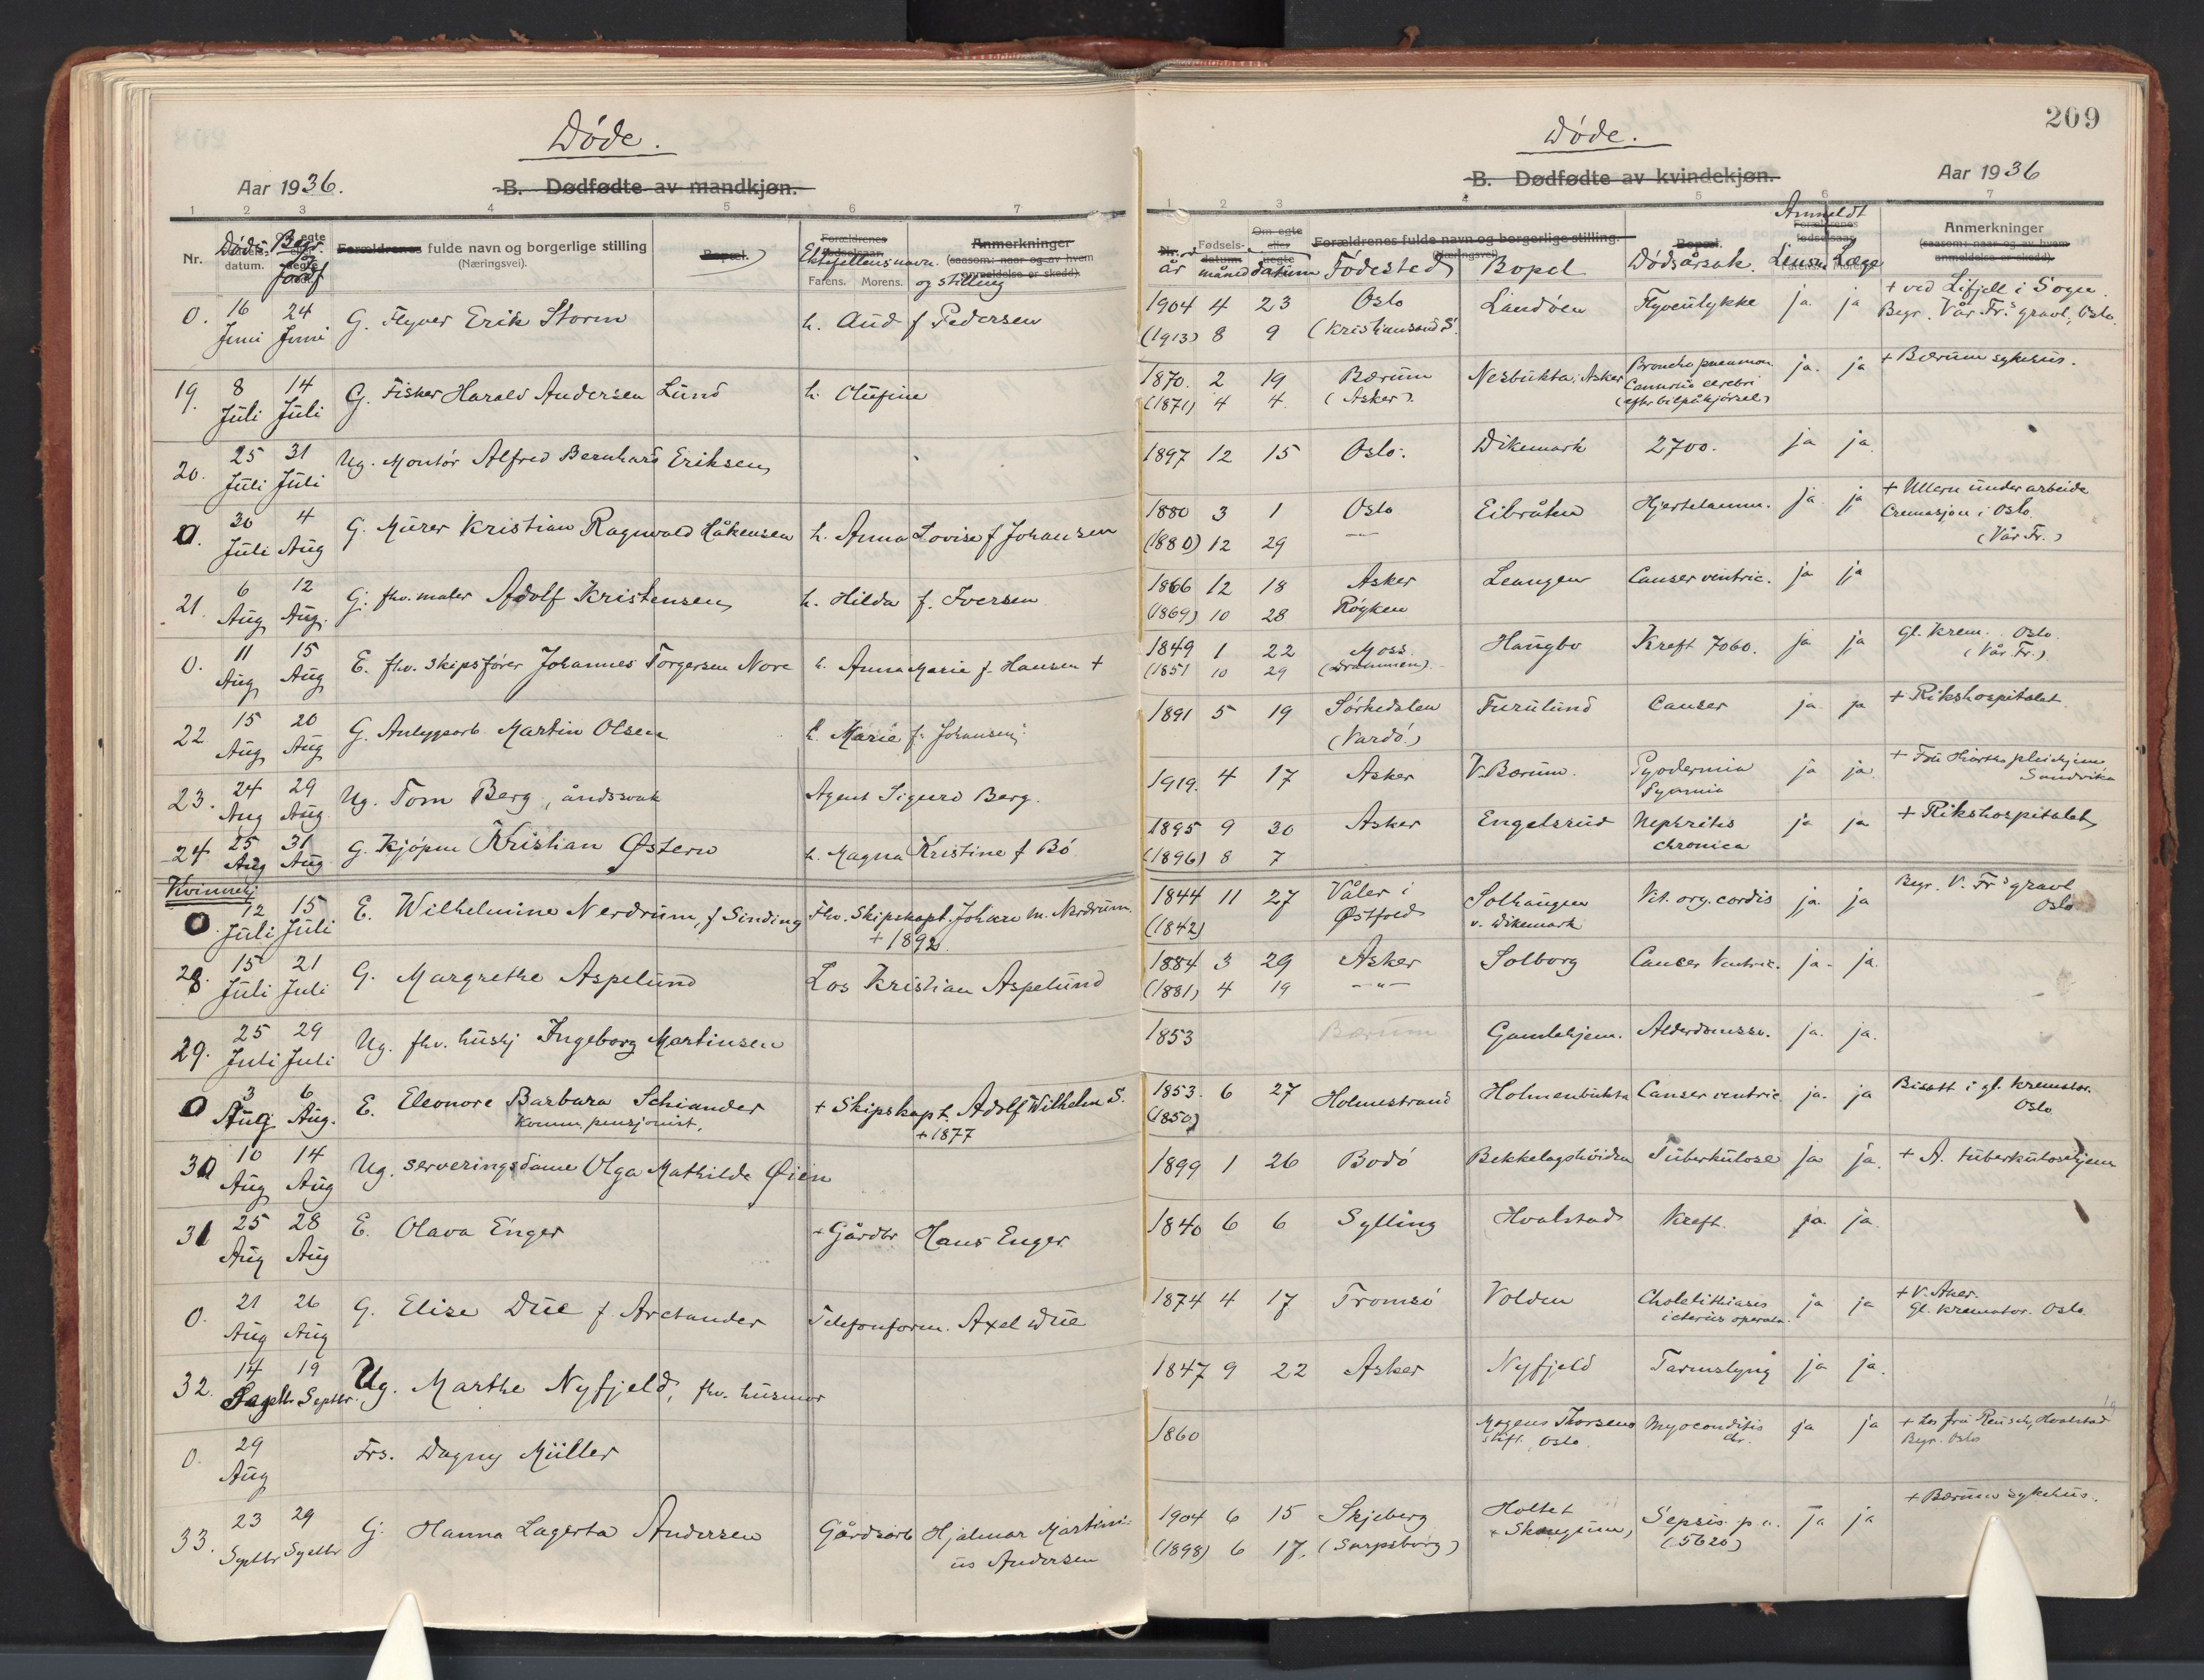 Døde.
Aar 1936.
B. Dødfødte av mandkjøn.
1 2 3 4 5 6 7
Nr. Døds- datum. Begr. Jordf Forældrenes fulde navn og borgerlige stilling (Næringsvei). Bopæl. Forældrenes Ektefellens navn og stilling Farens. Morens. Anmerkninger (saasom: naar og av hvem anmeldelse er skedd).
0. 16 Juni 24 Juni G. Flyver Erik Storm h. Aud f Pedersen
19. 8 Juli 14 Juli G. Fisker Harald Andersen Lund h. Olufine
20. 25 Juli 31 Juli Ug. Montør Alfred Bernhard Eriksen
0. 30 Juli 4 Aug G. Murer Kristian Ragnvald Håkensen h. Anna Lovise f Johansen
21. 6 Aug 12 Aug. G. fhv. maler Adolf Kristensen h. Hilda f. Iversen
0. 11 Aug 15 Aug E. fhv. Skipsfører Johannes Torgersen Nore h. Anna Marie f. Hansen +
22 15 Aug 20 Aug G. Anleggsarb Martin Olsen h. Marie f. Johansen
23. 24 Aug 29 Aug Ug. Tom Berg, åndssvak Agent Sigurd Berg.
24 25 Aug 31 Aug G. Kjøpm Kristian Østern h. Magna Kristine f Bö
Kvinnekj
0. 12 Juli 15 Juli E. Wilhelmine Nerdrum, f Sinding Fhv. Skipskapt. Johan M. Nerdrum. + 1892
28. 15 Juli 21 Juli G. Margrethe Aspelund Los Kristian Aspelund
29. 25 Juli 29 Juli Ug. fhv. hushj Ingeborg Martinsen
0 3 Aug 6 Aug. E. Eleonore Barbara Schiander Komm. pensjonist, + Skipskapt. Adolf Wilhelm S. + 1877
30 10 Aug 14 Aug Ug. serveringsdame Olga Mathilde Øien
31 25 Aug 28 Aug E. Olava Enger + Gårdbr Hans Enger
0. 21 Aug 26 Aug G. Elise Due f. Arctander Telefonform. Axel Due
32. 14 Septbr 19 Septbr. Ug. Marthe Nyfjeld, fhv. husmor
0. 29 Aug Frs. Dagny Müller
33. 23 Septbr 29 Septbr G. Hanna Lagerta Andersen Gårdsarb Hjalmar Martinius Andersen
209
Døde.
B. Dødfødte av kvindekjøn.
Aar 1936
1 2 3 4 5 6 7
år måned datum Fødested Bopel Dødsårsak. Anmeldt Lensm Læge Anmerkninger (saasom: naar og av hvem anmeldelse er skedd).
Forældrenes fulde navn og borgerlige stilling.
1904 4 23 Oslo Landøen Flyveulykke ja ja + ved Lifjell i Sogn.
(1913) 8 9 (Kristiansand S. Begr. Vår Fr.s gravl., Oslo.
1870. 2 19 Bærum Nesbukta, Asker Broncho pneumon. ja. ja + Bærum sykehus.
(1871) 4 4. (Asker). cerebri (efter bilpåkjørsel)
1897 12 15 Oslo. Dikemark 2700. ja ja
1880 3 1 Oslo Eibråten Hjertelamm. ja ja + Ullern under arbeide
(1880) 12 29 —"— Cremasjon i Oslo (Vår Fr.)
1866 12 18 Asker Leangen Canser ventric. ja ja
(1869) 10 28 Røyken
1849 1 22 Moss. Haugbo Kreft 7060. ja ja Gl. Krem. Oslo.
(1851 10 29 (Drammen). (Vår Fr.)
1891 5 19 Sørkedalen Furulund Canser ja ja + Rikshospitalet
(Vardø.)
1919. 4 17 Asker V. Bærum. Pyodermia ja ja + Fru pleiehjem Sandvika
1895 9 30 Asker Engelsrud Nephritis chronica ja ja + Rikshospitalet
(1896) 8 7
1844 11 27 Våler i Østfold Solhaugen v. Dikemark Vit. org. cordis ja ja Begr. V. Fr.s gravl Oslo
(1842)
1884 3 29 Asker Solborg Canser Ventric. ja. ja.
(1881) 4 19 —"—
1853 Bærum Gamlehjem. Alderdomssv. ja. ja.
1853. 6 27 Holmestrand Holmenbukta Canser ventric ja. ja Bisatt i gl. kremator. Oslo
(1850)
1899 1 26 Bodø Bekkelagshøiden Tuberkulose ja ja. + A. tuberkulosehjem
1840 6 6 Sylling Hvalstad Kreft. ja ja
1874 4 17 Tromsø Volden Cholelithiasis icterus operata. ja ja + V. Aker. Gl. kremator. Oslo
1847 9 22 Asker Nyfjeld Tarmslyng ja ja.
1860 Mogens Thorsens stift. Oslo Myocarditis chr. ja ja + hos fru Reusch, Hvalstad Begr. Oslo
1904 6 15 Skjeberg Holtet Sepsis p. a. ja ja + Bærum sykehus.
(1898) 6 17. (Sarpsborg) × Skaugum, (5620)